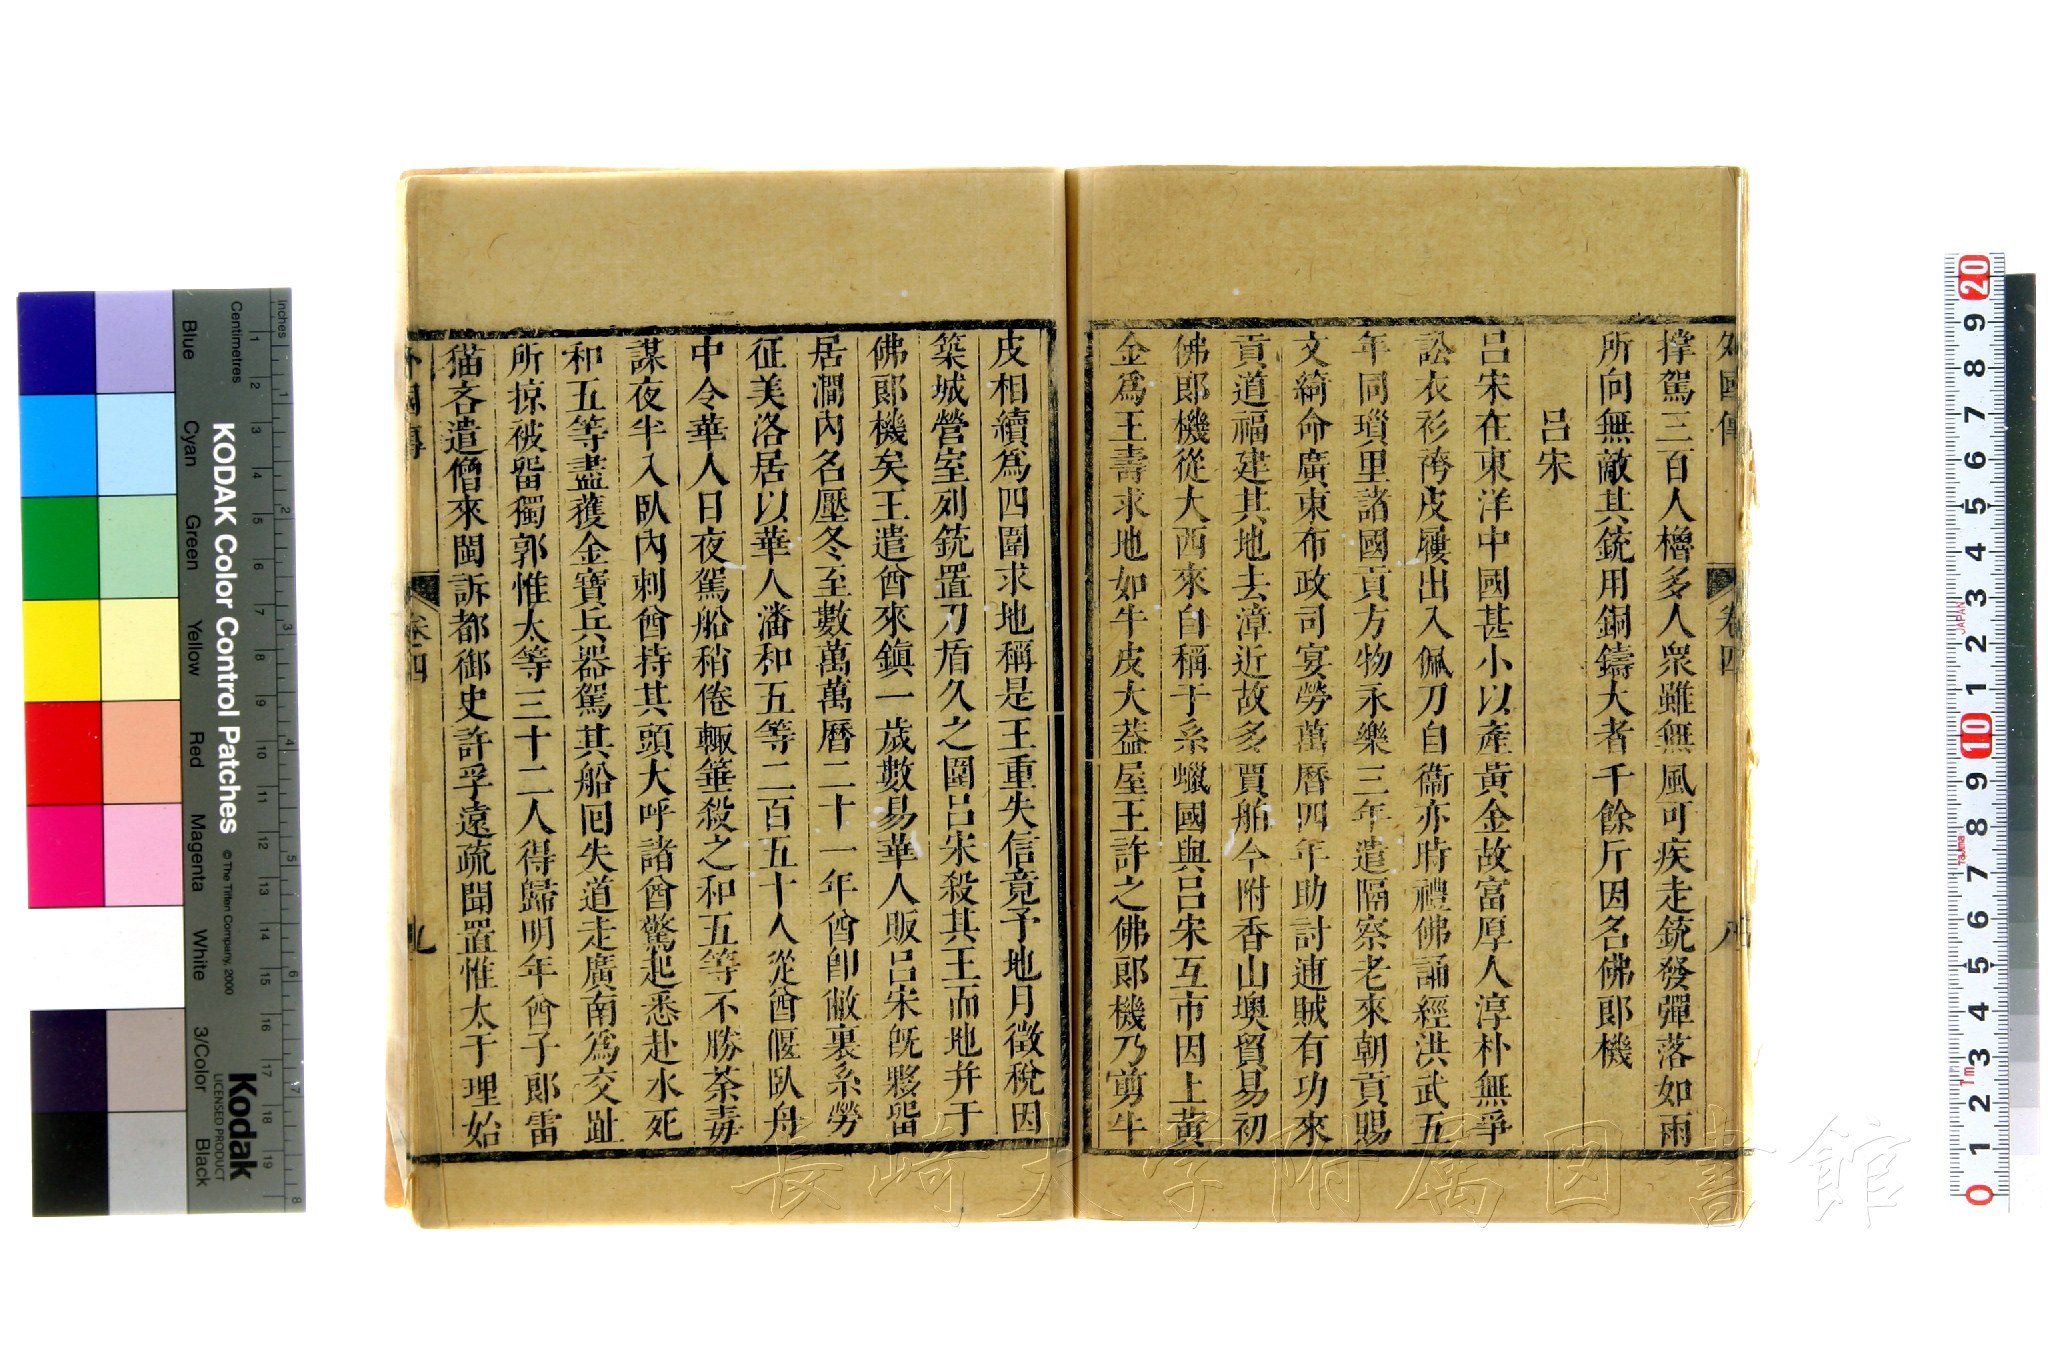 外國傳 卷四 八
撐駕三百人櫓多人衆雖無風可疾走銃發彈落如雨
所向無敵其銃用銅鑄大者千餘斤因名佛郎機
呂宋
呂宋在東洋中國甚小以產黃金故富厚人淳朴無爭
訟衣衫袴皮履出入佩刀自衞亦時禮佛誦經洪武五
年同瑣里諸國貢方物永樂三年遣隔察老來朝貢賜
文綺命廣東布政司宴勞萬曆四年助討逋賊有功來
貢道福建其地去漳近故多賈舶今附香山墺貿易初
佛郎機從大西來自稱于系蠟國與呂宋互市因上黃
金爲王壽求地如牛皮大葢屋王許之佛郎機乃剪牛
皮相續爲四圍求地稱是王重失信竟予地月徵稅因
築城營室列銃置刀盾久之圍呂宋殺其王而地并于
佛郎機矣王遣酋來鎮一歲數易華人販呂宋旣夥畱
居澗內名壓冬至數萬萬曆二十一年酋郎敝裏系勞
征美洛居以華人潘和五等二百五十人從酋偃臥舟
中令華人日夜駕船稍倦輙箠殺之和五等不勝荼毒
謀夜半入臥內刺酋持其頭大呼諸酋驚起悉赴水死
和五等盡獲金寶兵器駕其船囘失道走廣南爲交趾
所掠被畱獨郭惟太等三十二人得歸明年酋子郎雷
猫吝遣僧來閩訴都御史許孚遠疏聞置惟太于理始
外國傳 卷四 九
KODAK Color Control Patches
© The Tiffen Company, 2000
Kodak
LICENSED PRODUCT
Inches
Centimetres
Blue
Cyan
Green
Yellow
Red
Magenta
White
3/Color
Black
長崎大学附属図書館
JAPAN